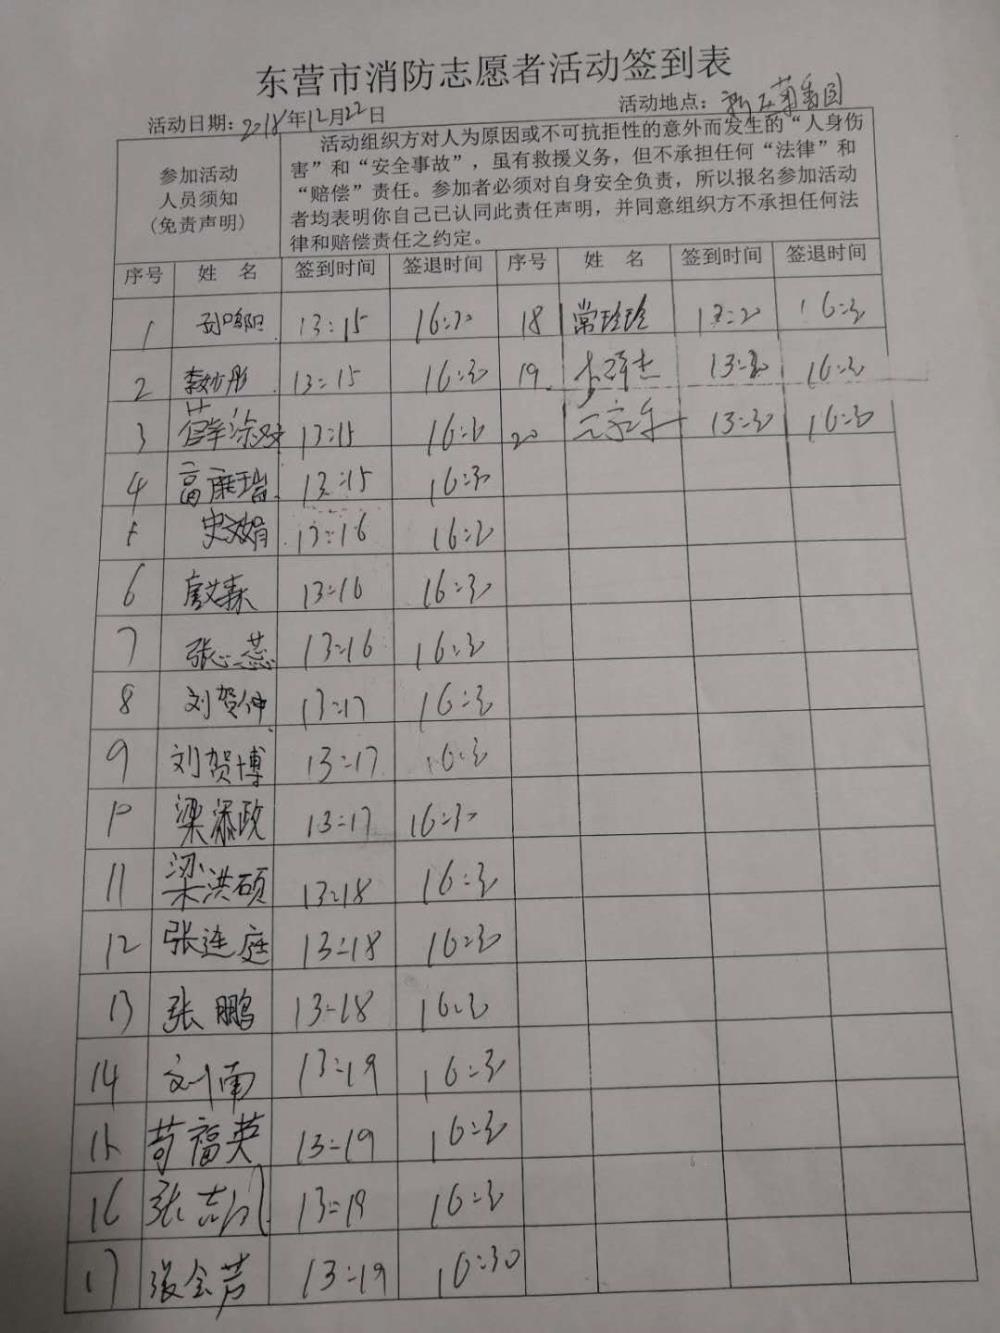 东营市消防志愿者活动签到表
活动日期：2018年12月22日 活动地点：
参加活动
人员须知
(免责声明)
活动组织方对人为原因或不可抗拒性的意外而发生的“人身伤
害”和“安全事故”，虽有救援义务，但不承担任何“法律”和
“赔偿”责任。参加者必须对自身安全负责，所以报名参加活动
者均表明你自己已认同此责任声明，并同意组织方不承担任何法
律和赔偿责任之约定。
序号 姓 名 签到时间 签退时间 序号 姓 名 签到时间 签退时间
1 孙鸣阳 13:15 16:30 18 常玲玲 13:20 16:30
2 13:15 16:30 19 13:20 16:30
3 13:15 16:30 20 13:20 16:30
4 高康瑞 13:15 16:30
5 史文娟 13:16 16:30
6 13:16 16:30
7 张心蕊 13:16 16:30
8 刘贺仲 13:17 16:30
9 刘贺博 13:17 16:30
10 梁添政 13:17 16:30
11 梁洪硕 13:18 16:30
12 张连庭 13:18 16:30
13 张鹏 13:18 16:30
14 刘南 13:19 16:30
15 苟福英 13:19 16:30
16 张志 13:19 16:30
17 张会芳 13:19 16:30